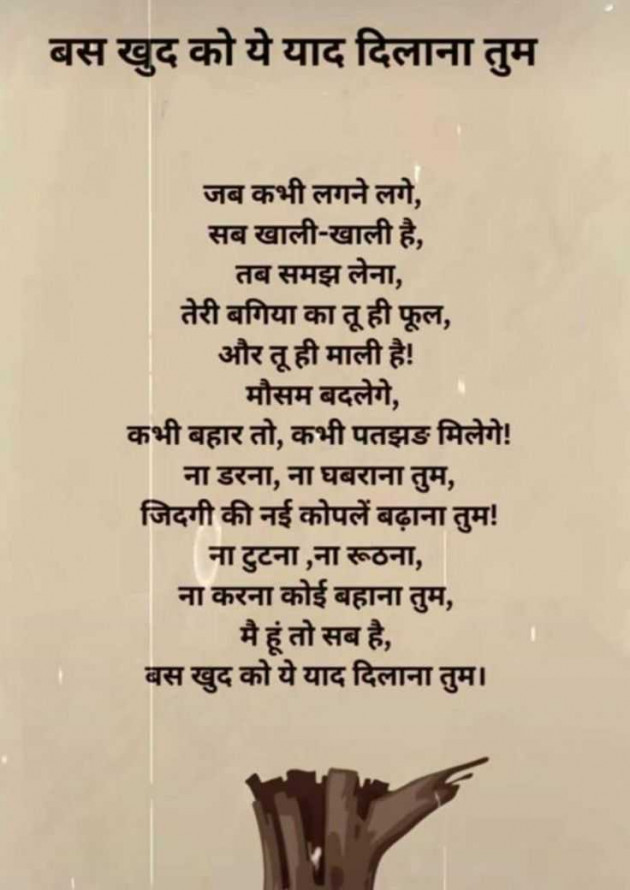 बस खुद को ये याद दिलाना तुम
जब कभी लगने लगे,
सब खाली-खाली है,
तब समझ लेना,
तेरी बगिया का तू ही फूल,
और तू ही माली है!
मौसम बदलेगे,
कभी बहार तो, कभी पतझङ मिलेगे!
ना डरना, ना घबराना तुम,
जिदगी की नई कोपलें बढ़ाना तुम!
ना टुटना ,ना रूठना,
ना करना कोई बहाना तुम,
मै हूं तो सब है,
बस खुद को ये याद दिलाना तुम।